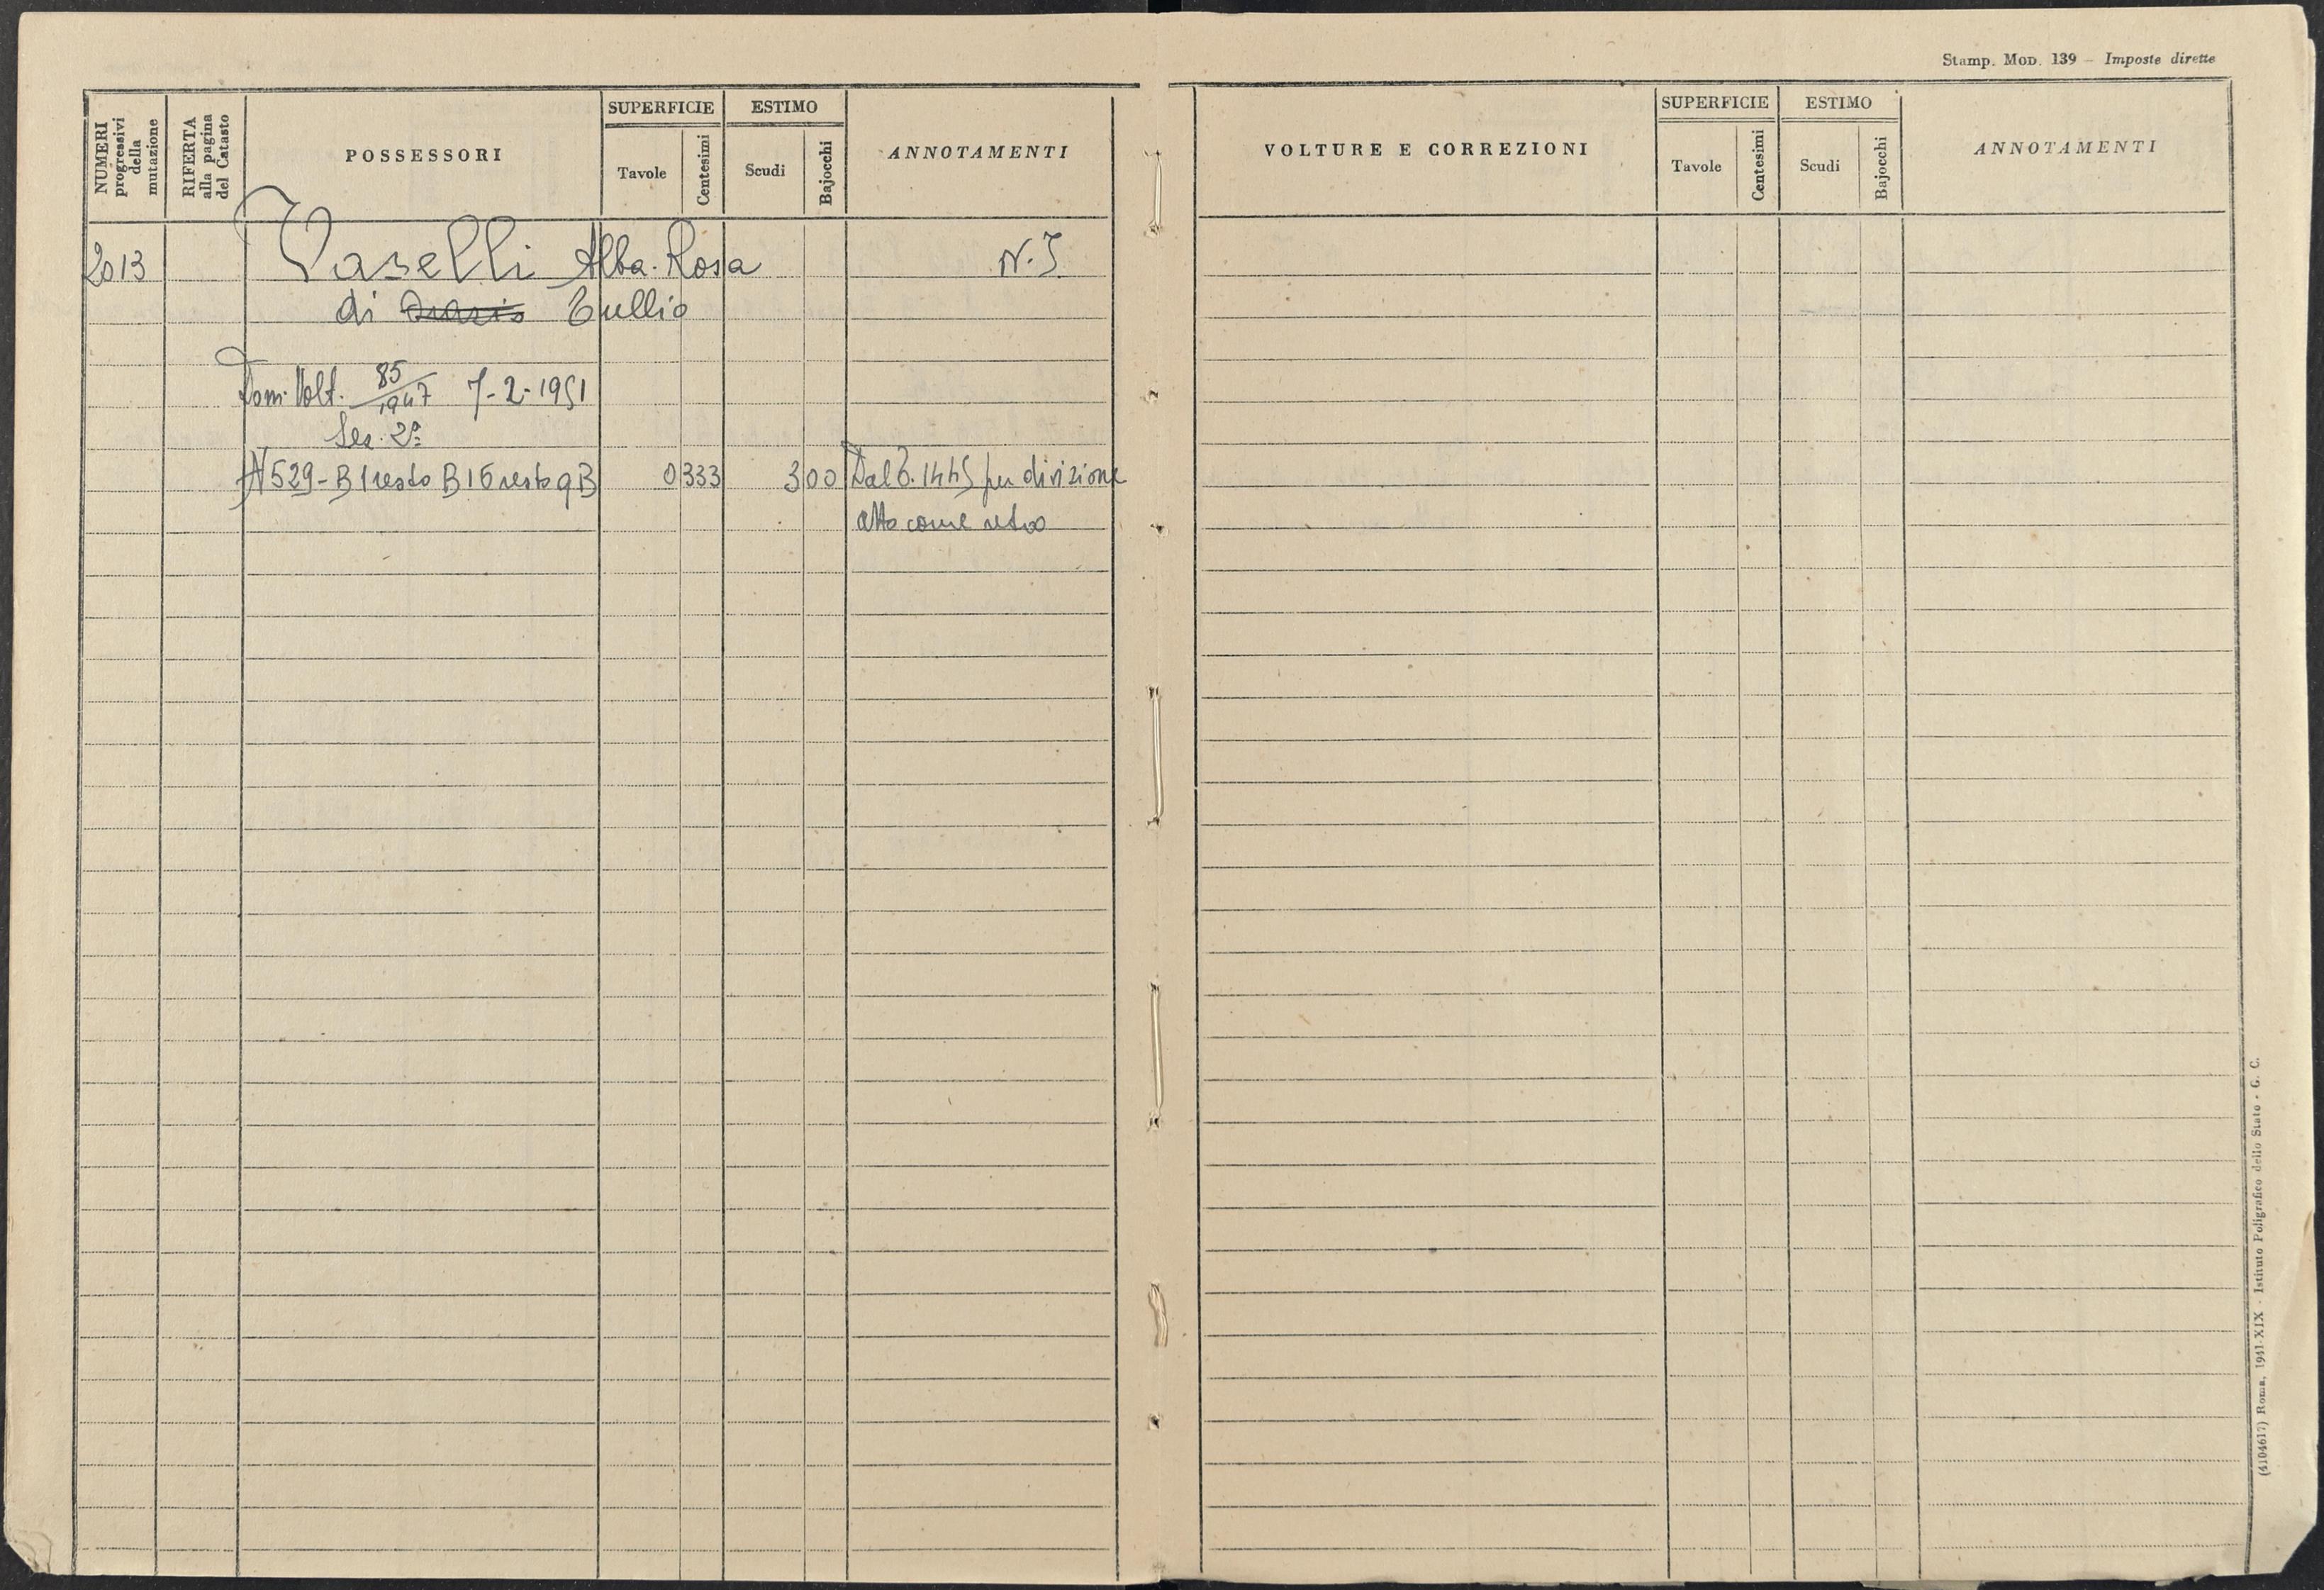 Stamp. Mod. 139 – Imposte dirette
NUMERI progressivi della mutazione
RIFERTA alla pagina del Catasto
POSSESSORI
SUPERFICIE
Tavole
Centesimi
ESTIMO
Scudi
Bajocchi
ANNOTAMENTI
VOLTURE E CORREZIONI
SUPERFICIE
Tavole
Centesimi
ESTIMO
Scudi
Bajocchi
ANNOTAMENTI
2013 Vaselli Alba-Rosa N.I
di Tullio
Dom. Volt. 85/1947 7-2-1951
Sez. 2ª
N 529-B1 resto B15 resto qB 0 333 3 00 Dal T. 1445 per divizione
atto come retro
(4104617) Roma, 1941-XIX - Istituto Poligrafico dello Stato - G. C.